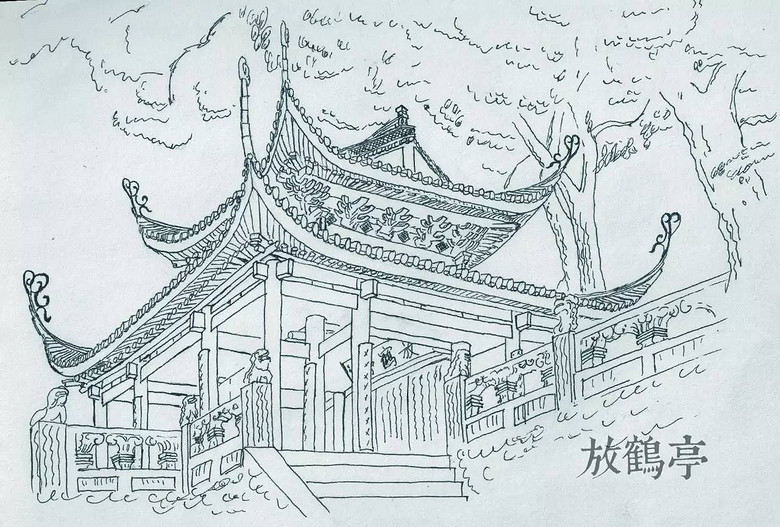 放鶴亭